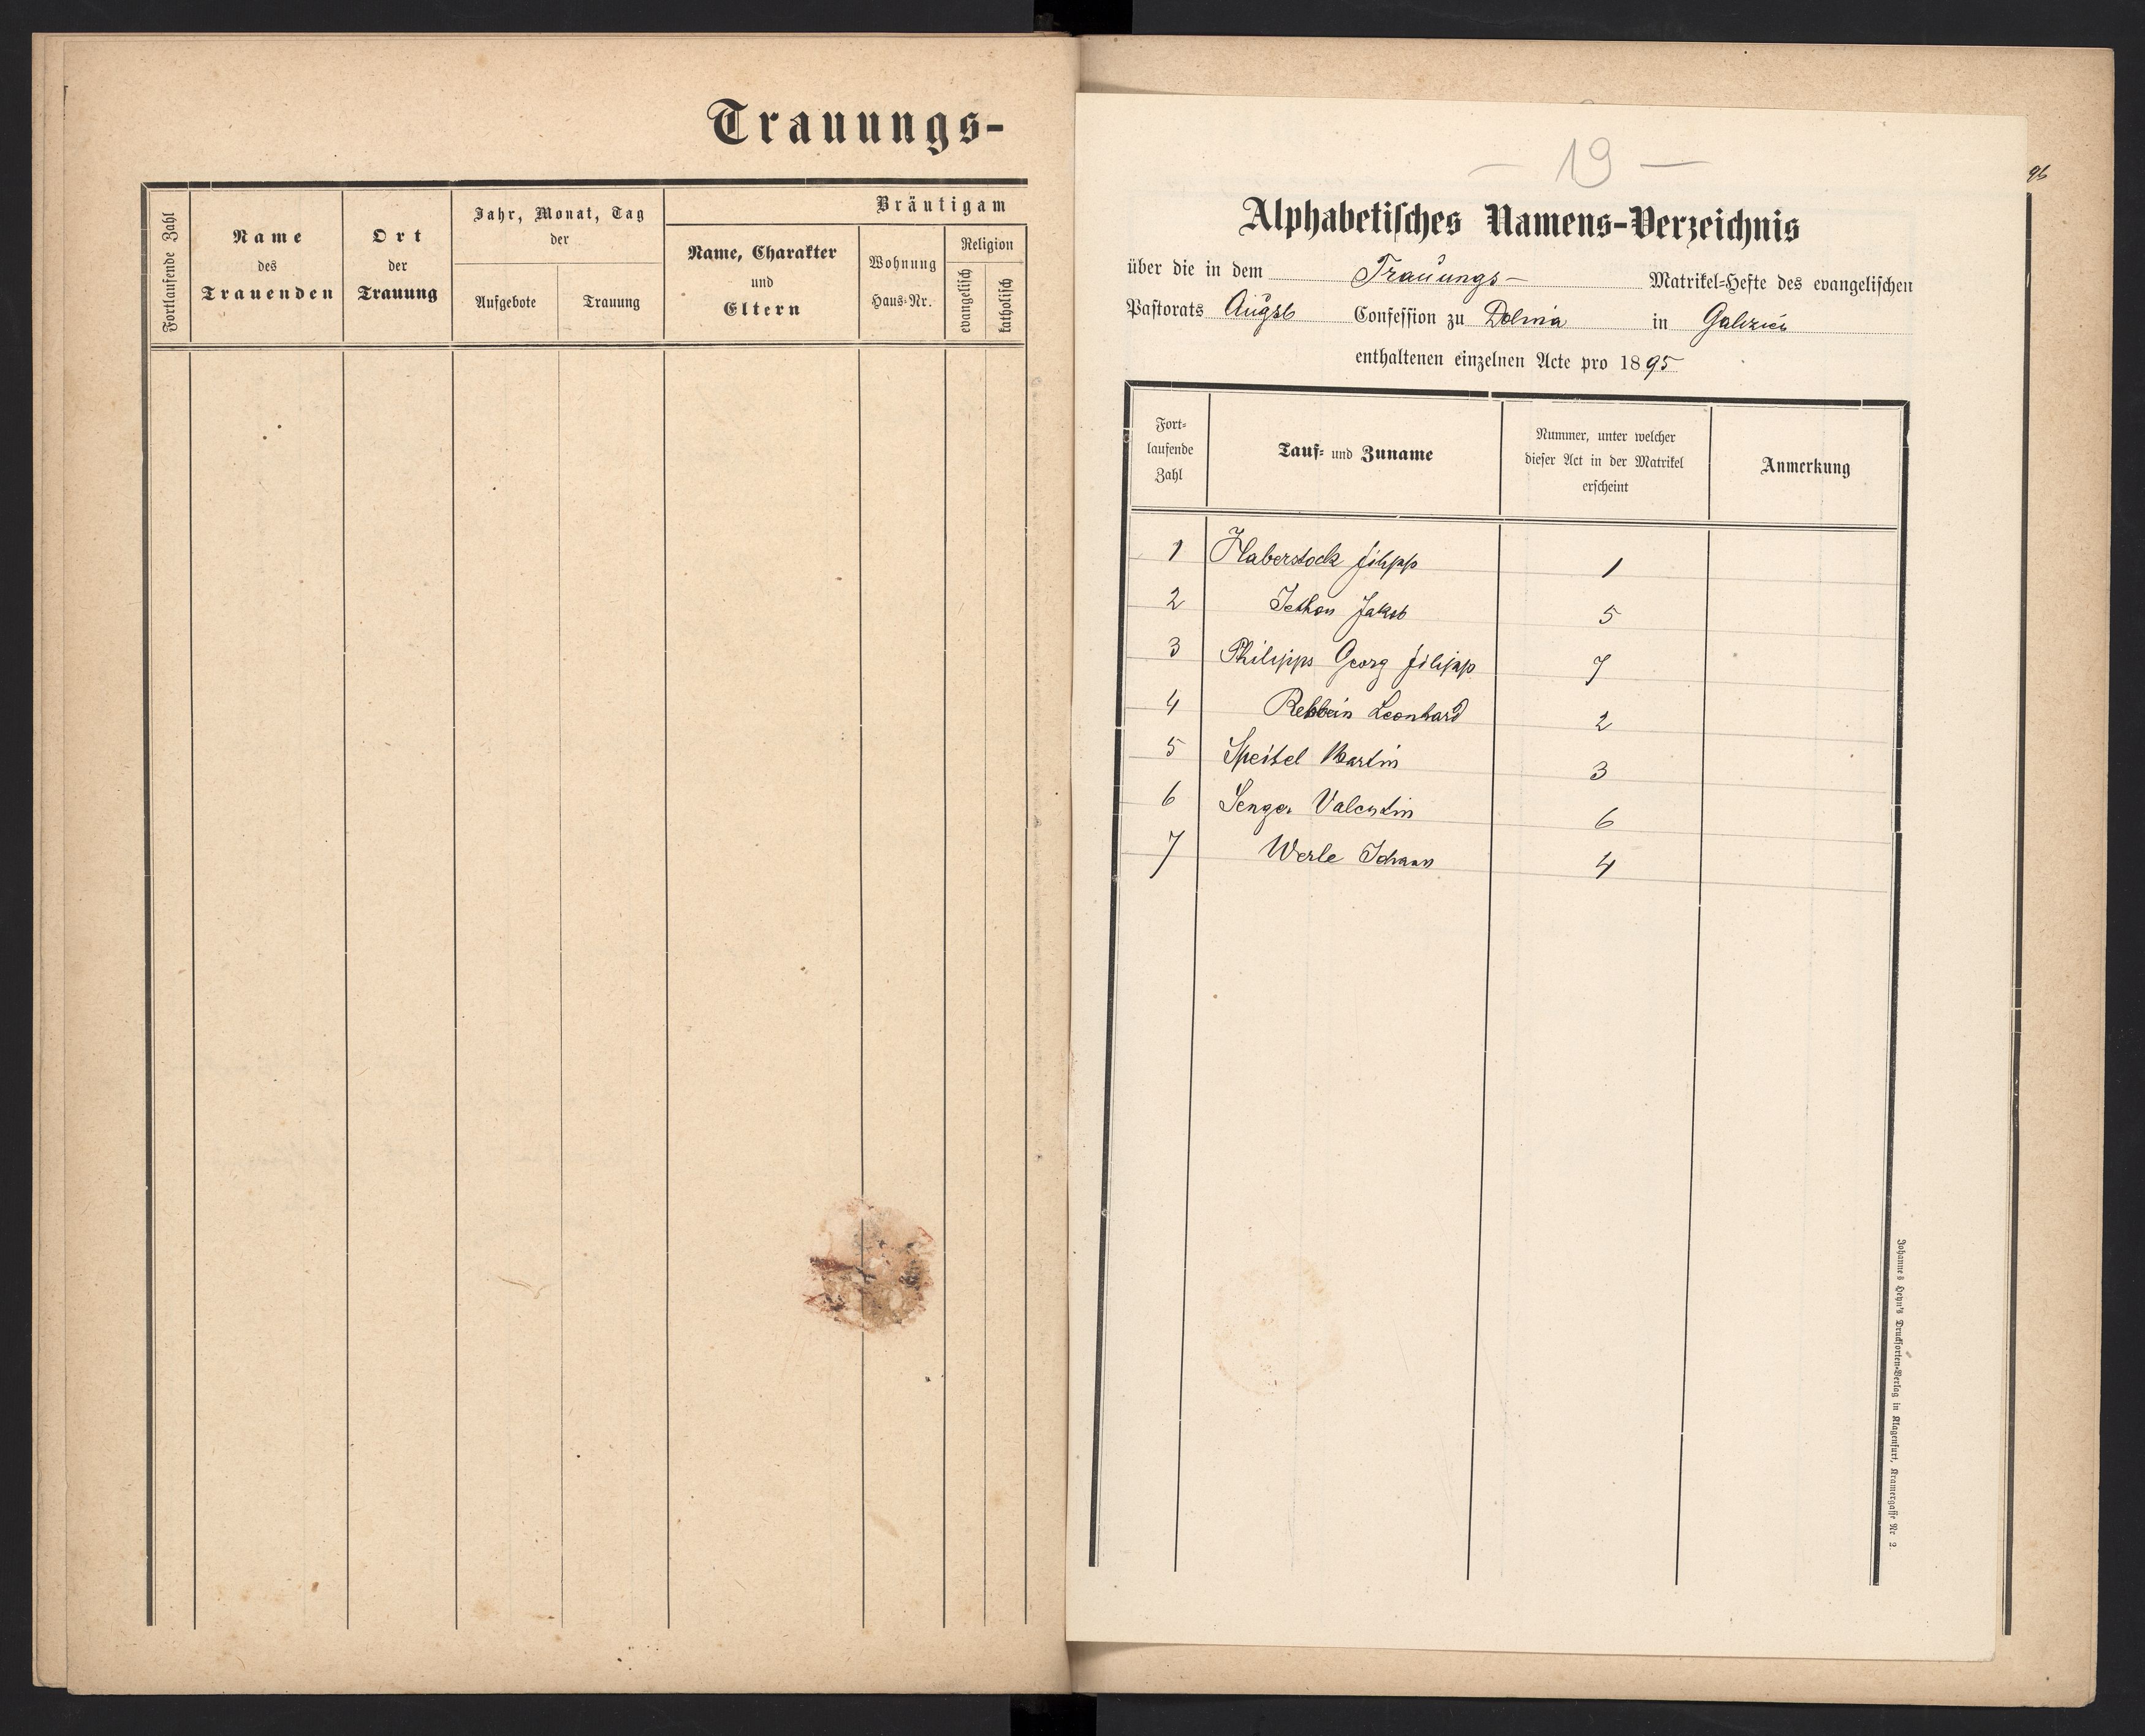 Trauungs-
Fortlaufende Zahl
Name
des
Trauenden
Ort
der
Trauung
Jahr, Monat, Tag
der
Aufgebote
Trauung
Bräutigam
Name, Charakter
und
Eltern
Wohnung
Haus-Nr.
Religion
evangelisch
katholisch
— 19 —
96
Alphabetisches Namens-Verzeichnis
über die in dem Trauungs- Matrikel-Hefte des evangelischen
Pastorats Augsb Confession zu Dolina in Galizien
enthaltenen einzelnen Acte pro 1895
Fort-
laufende
Zahl
Tauf- und Zuname
Nummer, unter welcher
dieser Act in der Matrikel
erscheint
Anmerkung
1 Haberstock Filipp 1
2 Jethon Jakob 5
3 Philipps Georg Filipp 7
4 Rebbein Leonhard 2
5 Speitel Martin 3
6 Senger Valentin 6
7 Werle Johann 4
Johannes Heyn's Drucksorten-Verlag in Klagenfurt, Kramergasse Nr 2.